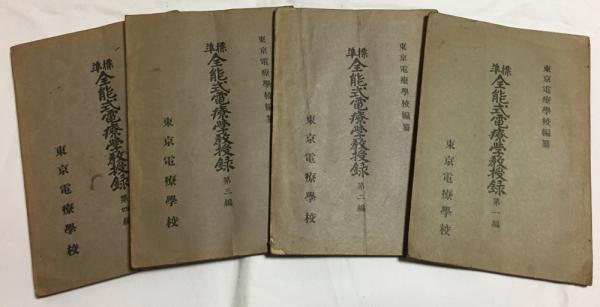 東京電療學校編纂
標準
全能式電療學教授録 第一編
東京電療學校
東京電療學校編纂
標準
全能式電療學教授録 第二編
東京電療學校
東京電療學校編纂
標準
全能式電療學教授録 第三編
東京電療學校
標準
全能式電療學教授録 第四編
東京電療學校